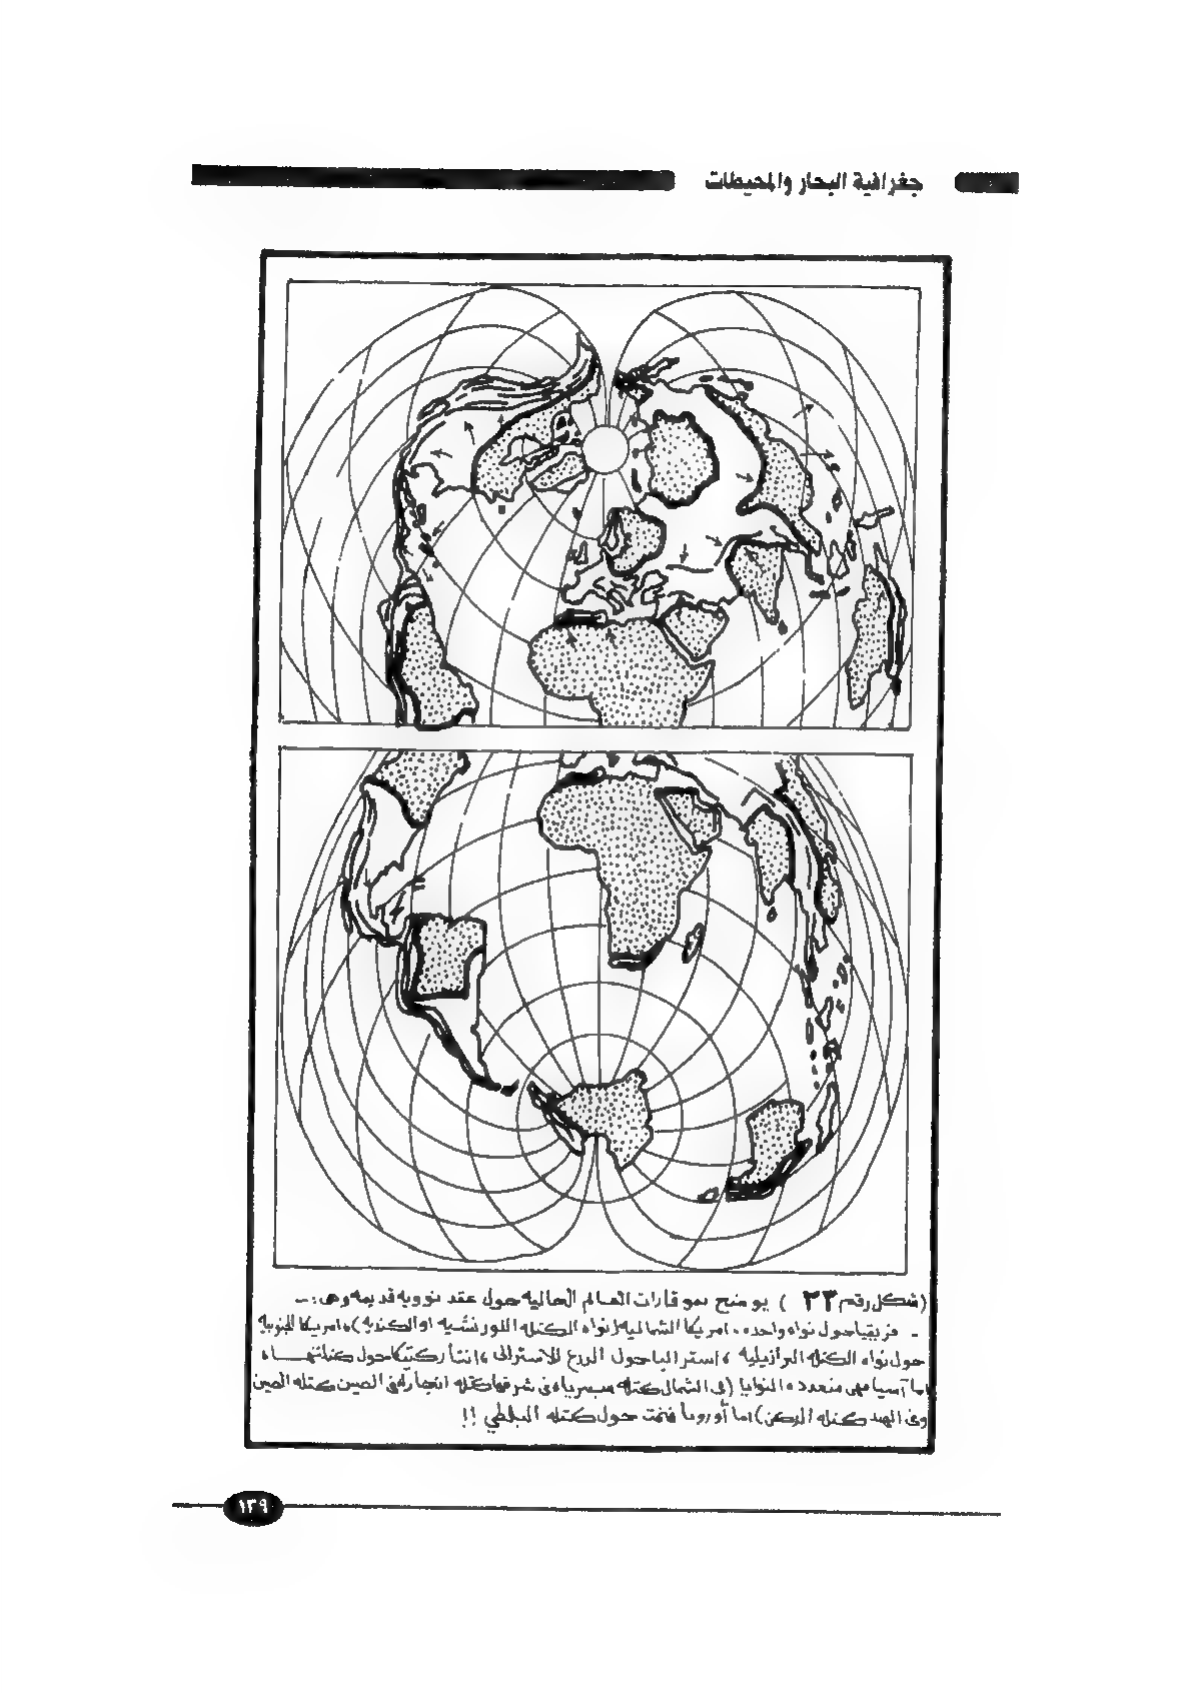 جغرافية البحار والمحيطات
(شكل رقم ٢٣ ) يوضح نمو قارات العالم الحاليه حول عقد نوويه قديمه وهى :ـ
ـ فريقيا حول نواه واحده ، امريكا الشماليه (نواه الكتله اللورنشيه او الكنديه)، امريكا الجنوبية
حول نواه الكتله البرازيليه ، استراليا حول الدرع الاسترالى ، انتأركتيكا حول كتلتهــا ،
اما آسيا فهى متعدده النوايا (فى الشمال كتله سيبرياه فى شرقها كتله انجارله فى الصين كتله الصين
وفى الهند كتله الدكن) اما أوروبا فنمت حول كتله البلطي !!
١٣٩